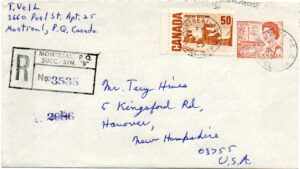 T. Veil
3660 Peel St. Apt. 25
Montreal, P.Q. Canada
CANADA
50
R
MONTREAL, P.Q.
SUCC. - STN. "B"
No 3535
2086
Mr. Terry Hines
6 Kingsford Rd,
Hanover,
New Hampshire
03755
U.S.A.